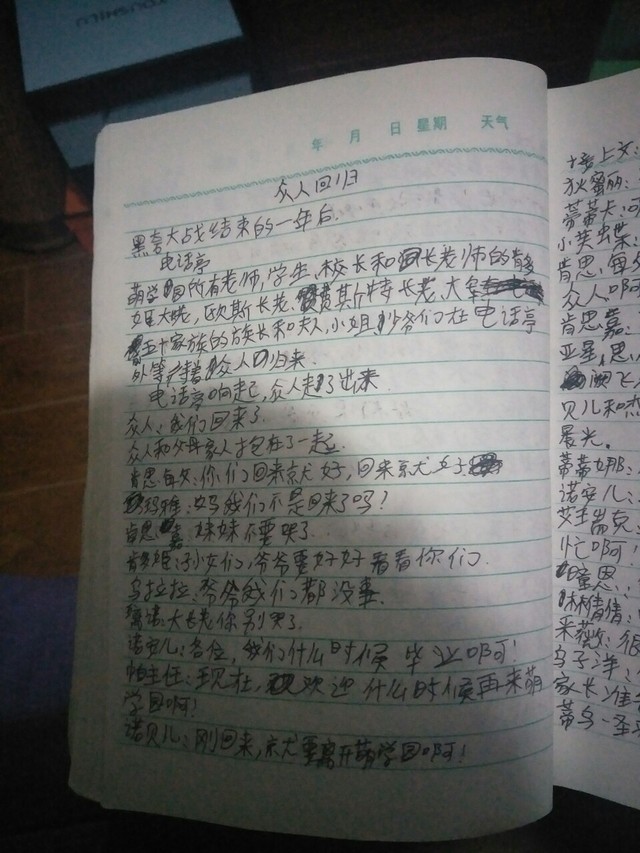 KOUSHILU
年 月 日 星期 天气
众人回归
黑衣大战结束的一年后
电话亭
萌学园所有老师,学生、校长和 长老师的
大晓,欧斯长老、贾斯特长老、大
五十家族的族长和夫人,小姐,少爷们在电话亭
外等 着众人回归来.
电话亭响起,众人走了出来
众人:我们回来了
众人和父母家人抱在了一起.
肯思母父:你们回来就好,回来就好
玛雅:妈我们不是回来了吗?
肯思嘉:妹妹不要哭了
肯 雄:孙女们,爷爷要好好看看你们
乌拉拉、爷爷我们都没事.
诺:大长老你别哭了
诺安儿:各位,我们什么时候毕业啊!
帕主任:现在,欢迎什么时候再来萌
学园啊!
诺贝儿:刚回来,就要离开萌学园啊!
接上文:
狄蜜丽:
蒂蒂卡:可
小芙蝶:
肯思,每
众人啊
肯思嘉:
亚星,思
阙飞
贝儿和杰
晨光.
蒂蒂娜:
诺安儿:
艾瑞克
忙啊!
童思:
林倩倩:
采薇:很
乌子洋:
家长:准
蒂乌一圣